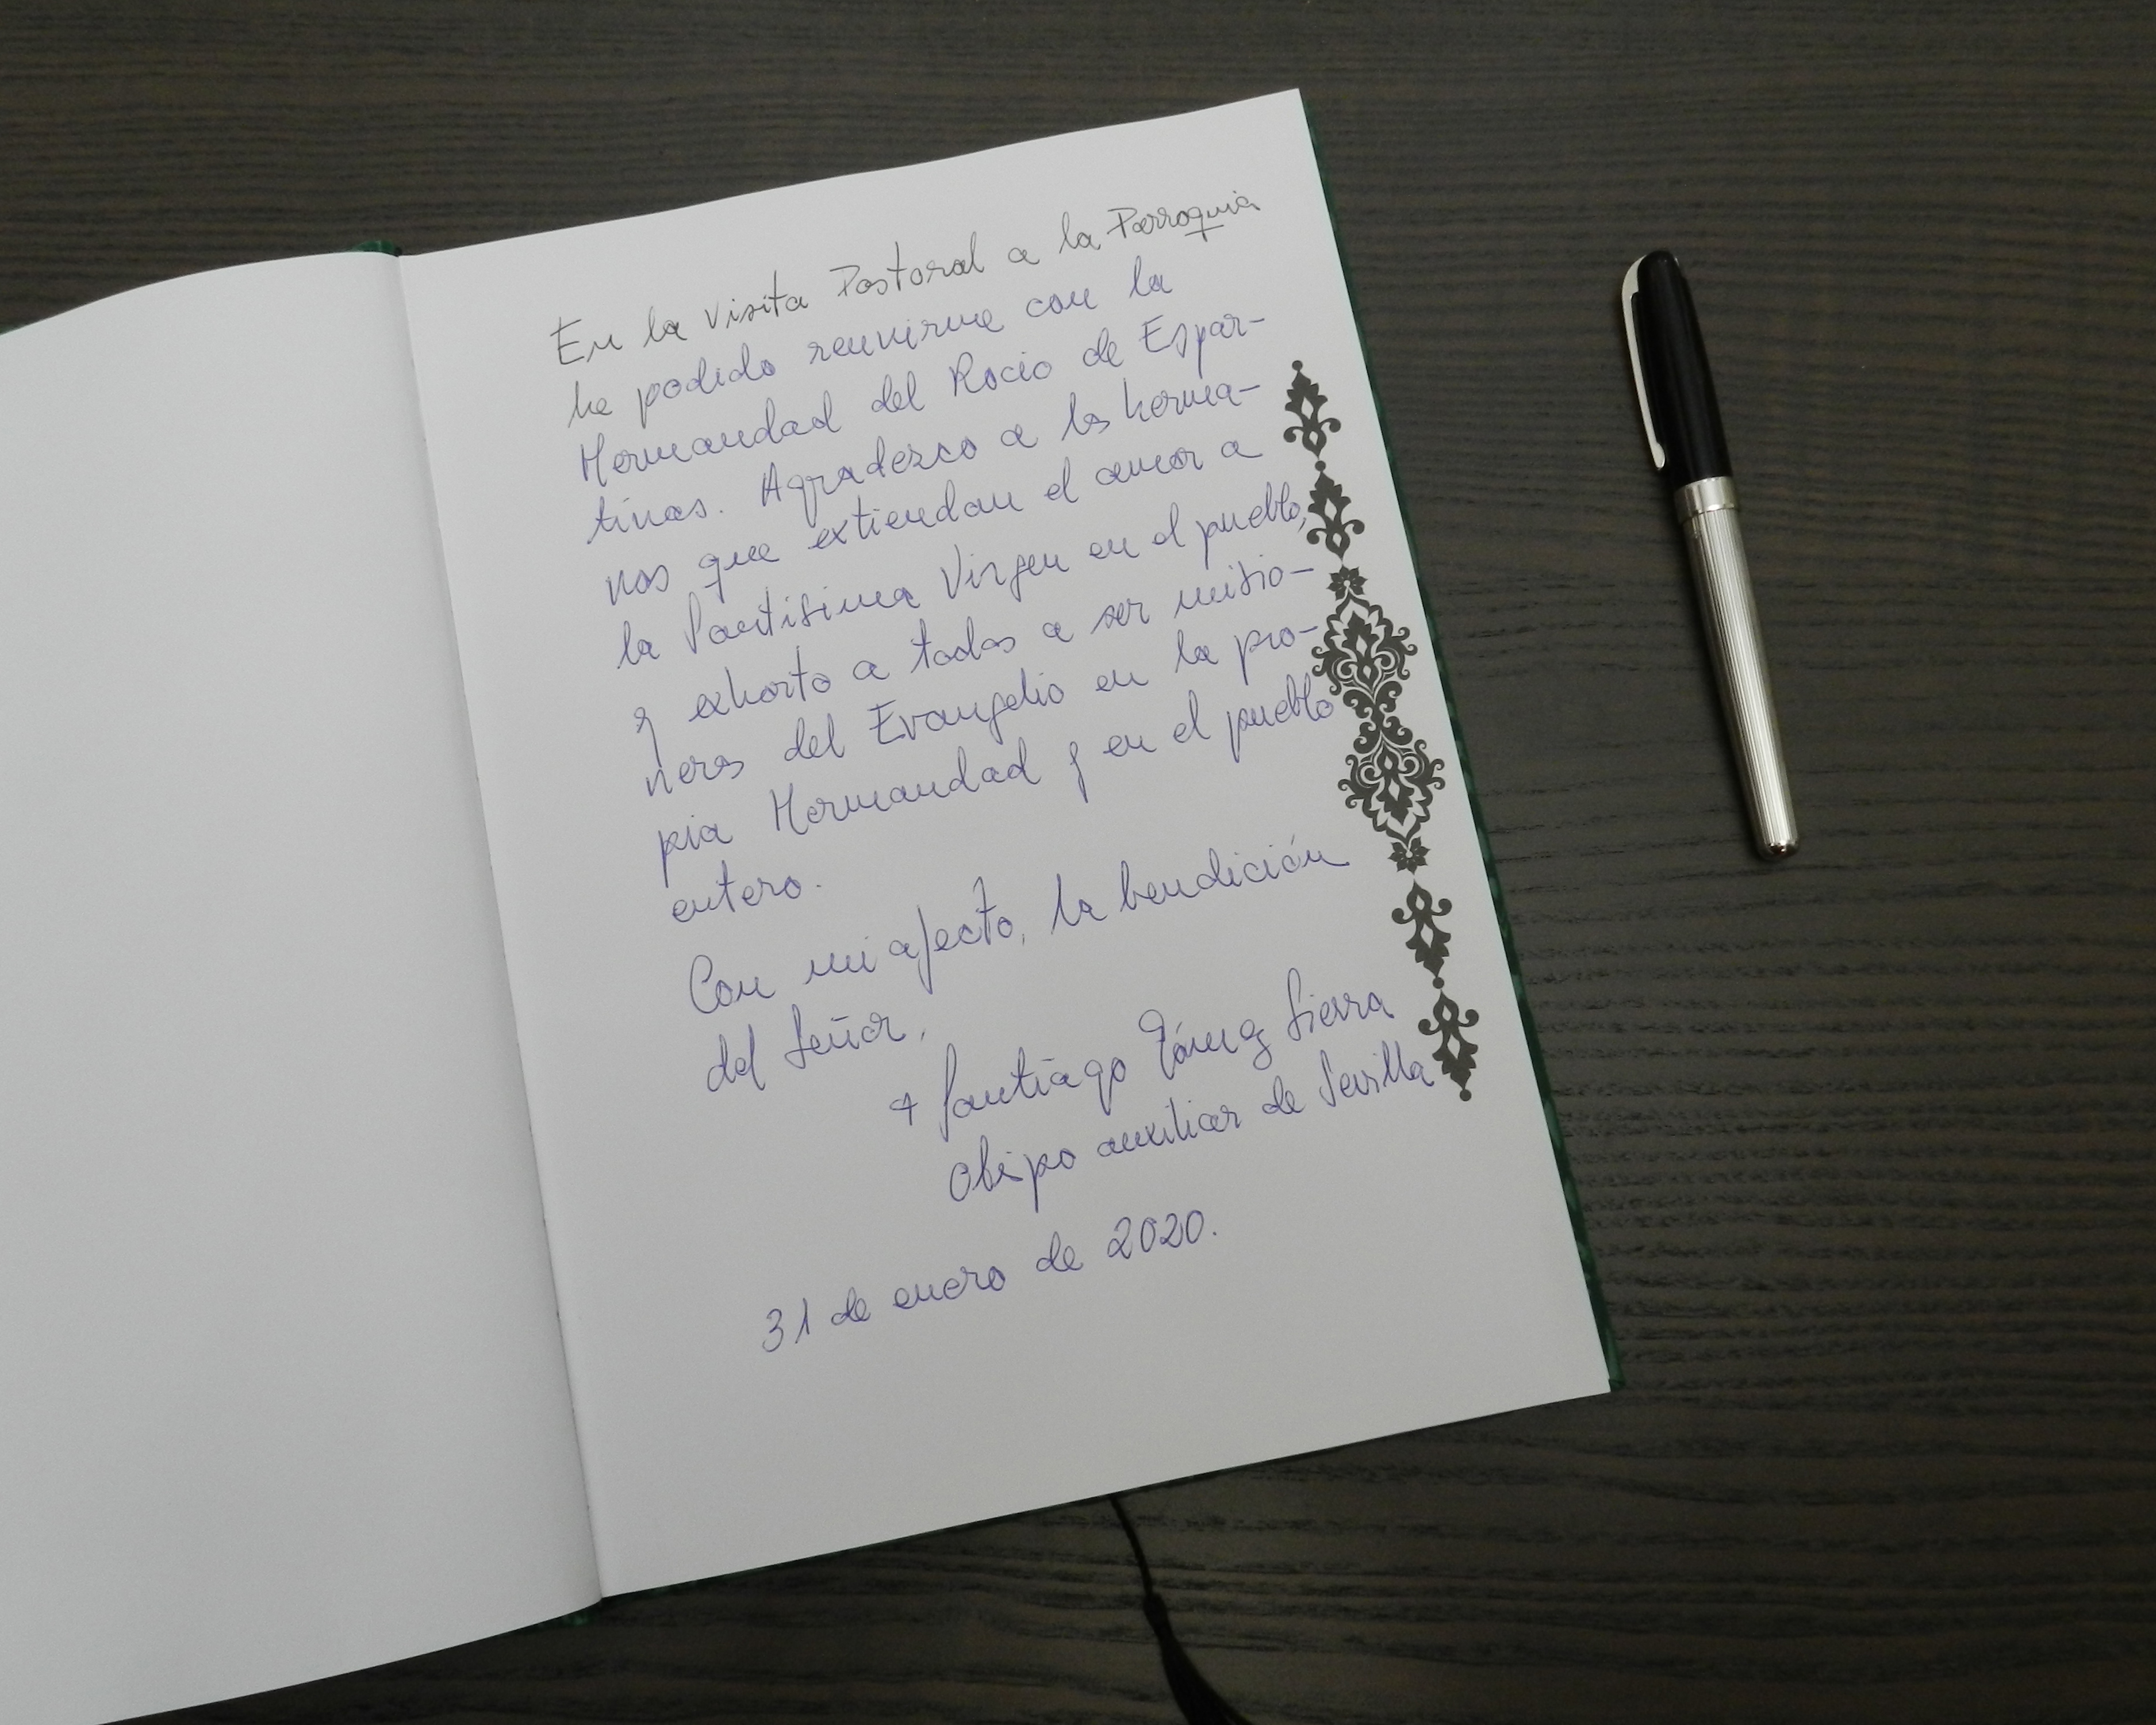 En la Visita Pastoral a la Parroquia
he podido reunirme con la
Hermandad del Rocio de Espar-
tinas. Agradezco a los herma-
nos que extiendan el amor a
la Santísima Virgen en el pueblo,
y exhorto a todos a ser misio-
neros del Evangelio en la pro-
pia Hermandad y en el pueblo
entero.
Con mi afecto, la bendición
del Señor,
+ Santiago Gómez Sierra
Obispo auxiliar de Sevilla
31 de enero de 2020.